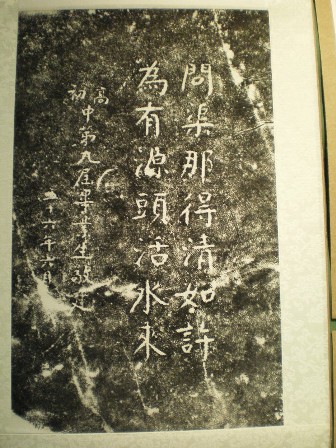 問渠那得清如許
為有源頭活水來
高
初中第九屆畢業生敬建
二十六年六月